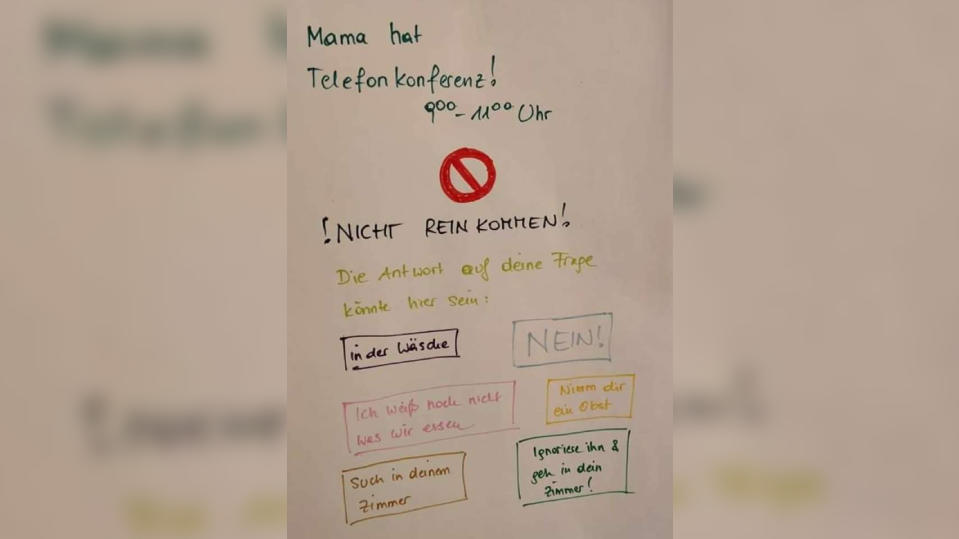 Mama hat
Telefonkonferenz!
900 - 1100 Uhr
! NICHT REIN KOMMEN!
Die Antwort auf deine Frage
könnte hier sein:
in der Wäsche
NEIN!
Ich weiß noch nicht
was wir essen
Nimm dir
ein Obst
Such in deinem
Zimmer
Ignoriere ihn &
geh in dein
Zimmer!